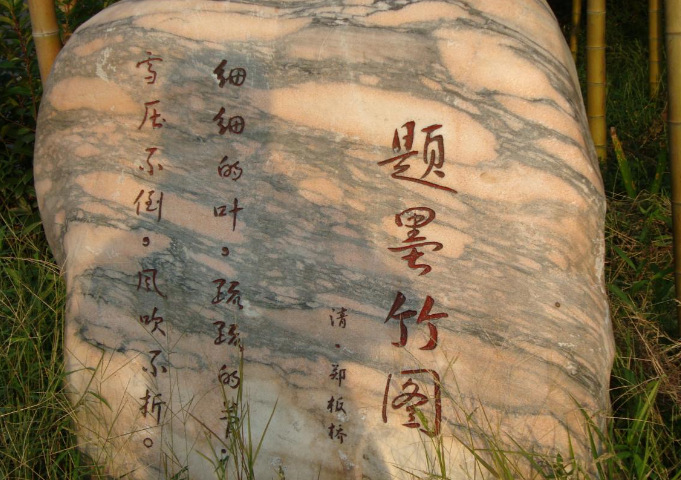 题墨竹图
清·郑板桥
细细的叶，疏疏的节，
雪压不倒，风吹不折。